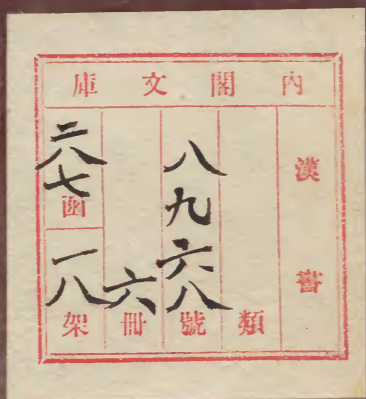 內閣文庫
漢書
類
八九六八號
六冊
二八七函
一八架